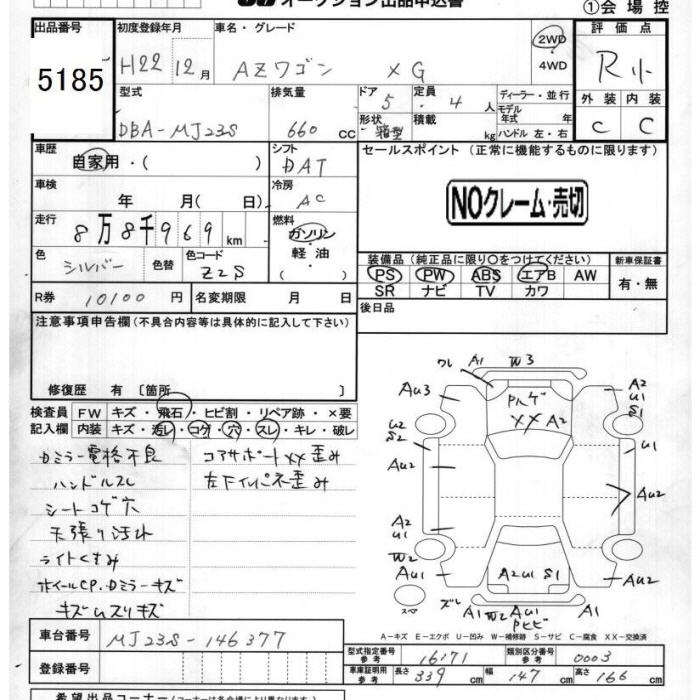 オークション出品申込書
①会場控
出品番号
5185
初度登録年月
H22 12月
車名・グレード
AZワゴン XG
2WD
・
4WD
評価点
R小
外装 内装
C C
型式
DBA-MJ23S
排気量
660 cc
ドア
5
定員
4人
形状
箱型
積載
kg
ディーラー・並行
モデル年式 年
ハンドル 左・右
車歴
自家用・( )
シフト
DAT
車検
年 月( 日)
冷房
AC
走行
8万8千969 km
燃料
ガソリン
・
軽油
( )
色
シルバー
色替
色コード
Z2S
R券 10100 円
名変期限 月 日
セールスポイント (正常に機能するものに限ります)
NOクレーム・売切
装備品(純正品に限り○をつけてください)
PS PW ABS エアB AW
SR ナビ TV カワ
新車保証書
有・無
後日品
注意事項申告欄(不具合内容等は具体的に記入して下さい)
修復歴 有 〔箇所 〕
検査員記入欄
FW キズ・飛石・ヒビ割・リペア跡・×要
内装 キズ・汚レ・コゲ・穴・スレ・キレ・破レ
Dミラー電格不良
ハンドルスレ
シートコゲ穴
天張り汚れ
ライトくすみ
ホイールCP.Dミラーキズ
コアサポートXX歪み
左下インパネ歪み
ワレ A1 W3
AU3
A2
U1
S1
XX A2
U2
S2
U1
AU2
AU2
A2
U1
W2
AU1
A2 U1 S1
AU2
ズレ A1 W2 AU1 A1
A-キズ E-エクボ U-凹み W-補修跡 S-サビ C-腐食 XX-交換済
車台番号
MJ23S-146377
登録番号
型式指定番号
参考
16171
類別区分番号
参考
0003
車庫証明用
参考
長さ 339 cm
幅 147 cm
高さ 166 cm
希望出品コーナー(コーナーは各会場により異なります)